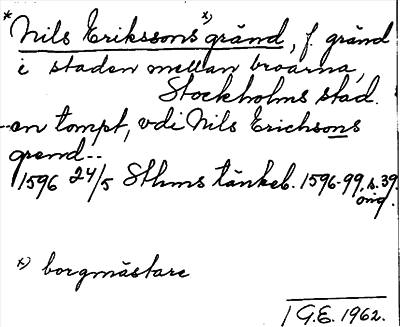 * Nils Erikssons x) gränd, f. gränd
i staden mellan broarna,
Stockholms stad.
--en tompt, vdi Nils Erichsons
grend--
1596 24/5 Sthms tänkeb. 1596-99, s. 39.
orig.
x) borgmästare
G.E. 1962.